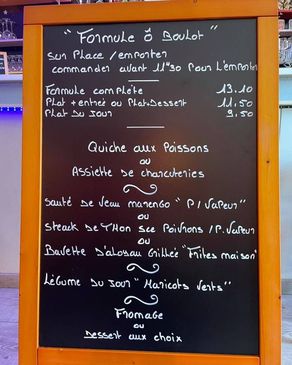 "Formule Ô Boulot"
Sur Place / emporter
commander avant 11h30 Pour L'emporter
Formule complète 13.10
Plat + entrée ou Plat+Dessert 11,50
Plat Du Jour 9,50
Quiche aux Poissons
ou
Assiette de charcuteries
Sauté de Veau marengo "P/Vapeur"
ou
Steack de Thon sce Poivrons / P. Vapeur
ou
Bavette D'aloyau Grillée "Frites maison"
Légume Du Jour "Haricots Verts"
Fromage
ou
Dessert aux choix